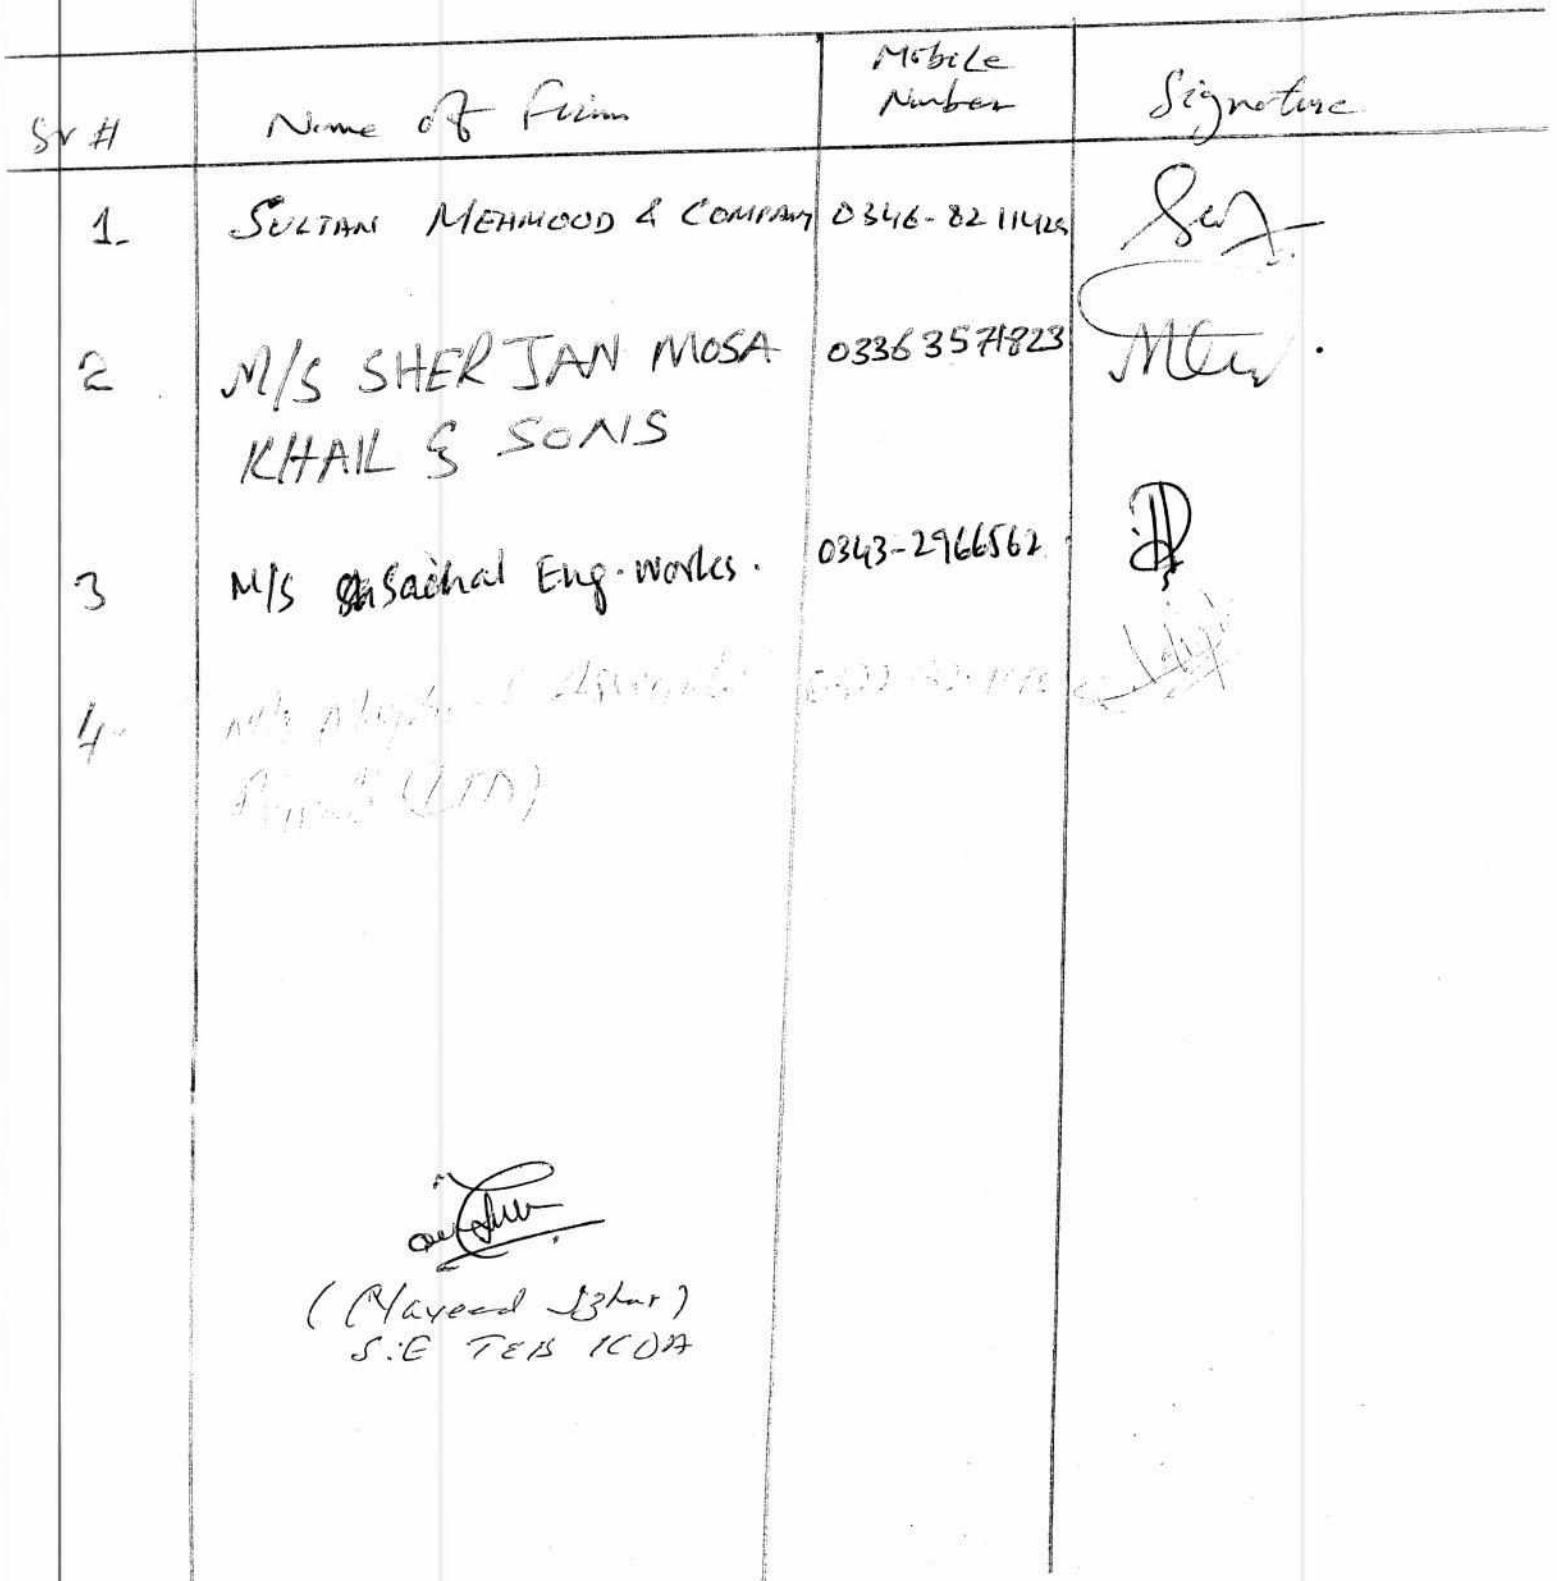 Sr # Name of Firm Mobile Number Signature
1- SULTAN MEHMOOD & COMPANY 0346-8211425
2 M/S SHER JAN MOSA 03363571823
KHAIL & SONS
3 M/S Sachal Eng. Works. 0343-2966562
4- M/s
(LTD)
(Nayeed Izhar)
S.E TEB KDA